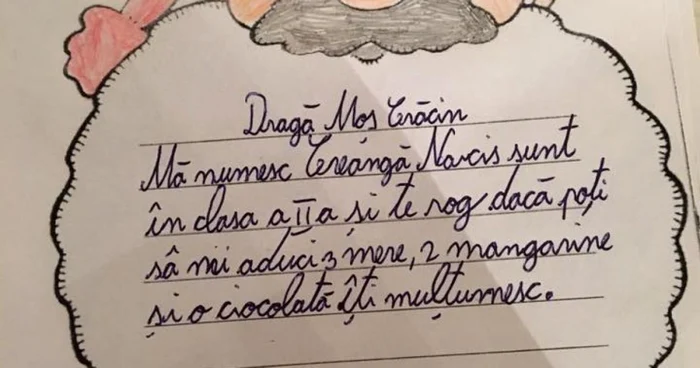 Dragă Moș Crăcin
Mă numesc Creangă Narcis sunt
în clasa a II a și te rog dacă poți
să mi aduci 3 mere, 2 mangarine
și o ciocolată îți mulțumesc.